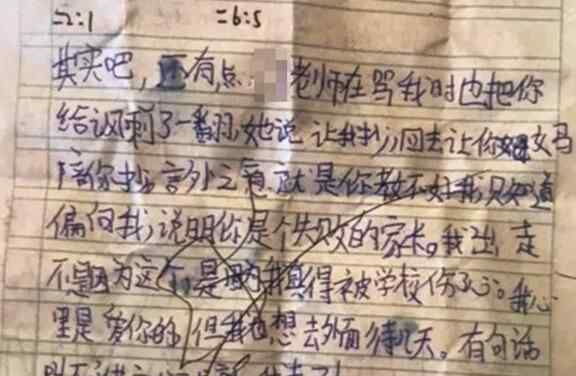 =2:1 =6:5
其实吧，还有点 老师在骂我时也把你
给讽刺了一番，她说让我抄，回去让你妈
陪你抄，言外之意就是你教不好我，只知道
偏向我，说明你是个失败的家长。我出走
不是因为这个，是因为我真得被学校伤了心。我心
里是爱你的，但我也想去外面待几天。有句话